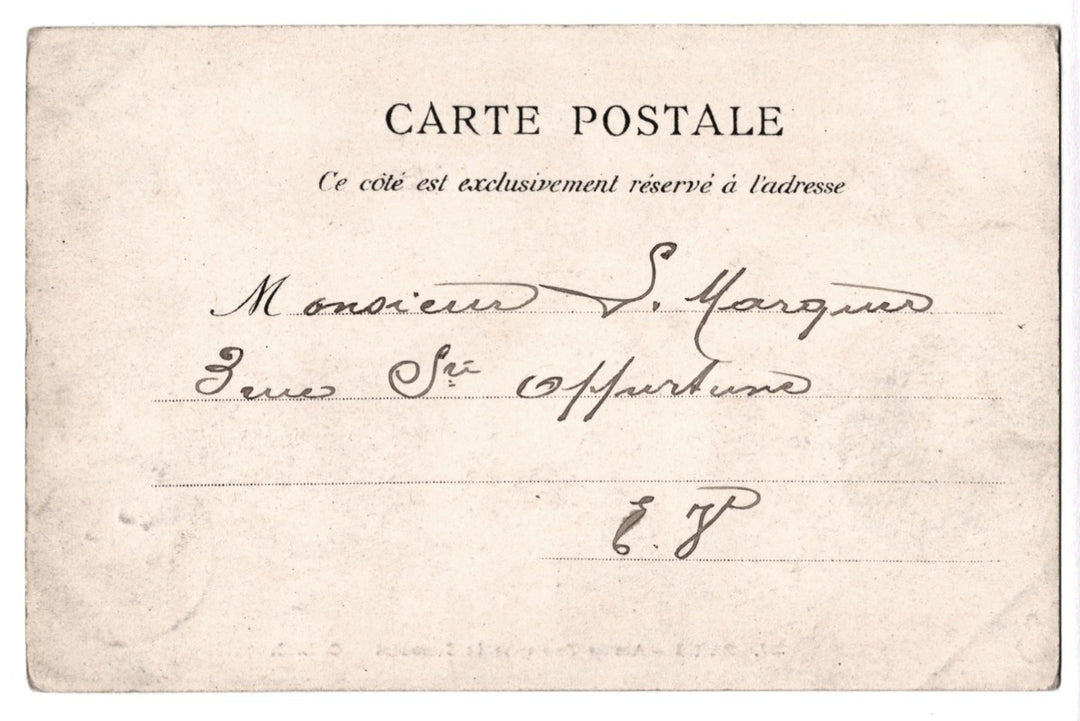 CARTE POSTALE
Ce côté est exclusivement réservé à l'adresse
Monsieur S. Marquer
3 rue Ste Opportune
E. V